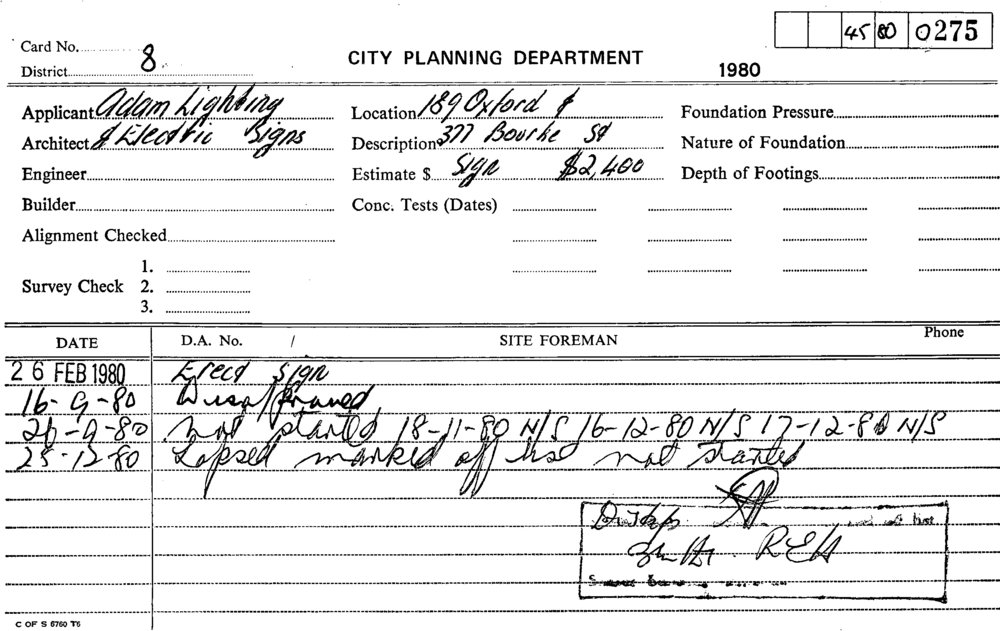 45 80 0275
Card No. 8
CITY PLANNING DEPARTMENT
District
1980
Applicant Adam Lighting Location 189 Oxford & Foundation Pressure
Architect & Electric Signs Description 377 Bourke St Nature of Foundation
Engineer Estimate $ Sign $2,400 Depth of Footings
Builder Conc. Tests (Dates)
Alignment Checked
1.
Survey Check 2.
3.
DATE D.A. No. / SITE FOREMAN Phone
26 FEB 1980 Erect Sign
16-9-80 Disapproved
26-9-80 not started 18-11-80 N/S 16-12-80 N/S 17-12-80 N/S
25-12-80 Lapsed marked off list not started
REH
C OF S 6760 T6